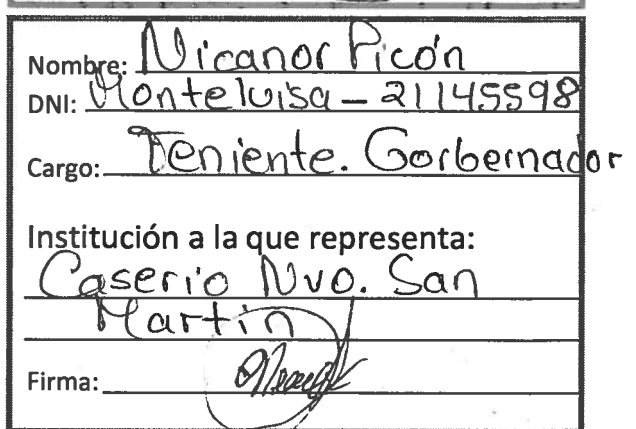 Nombre: Nicanor Picón
DNI: Monteluisa - 21145598
Cargo: Teniente. Gorbernador
Institución a la que representa:
Caserio Nvo. San
Martin
Firma: